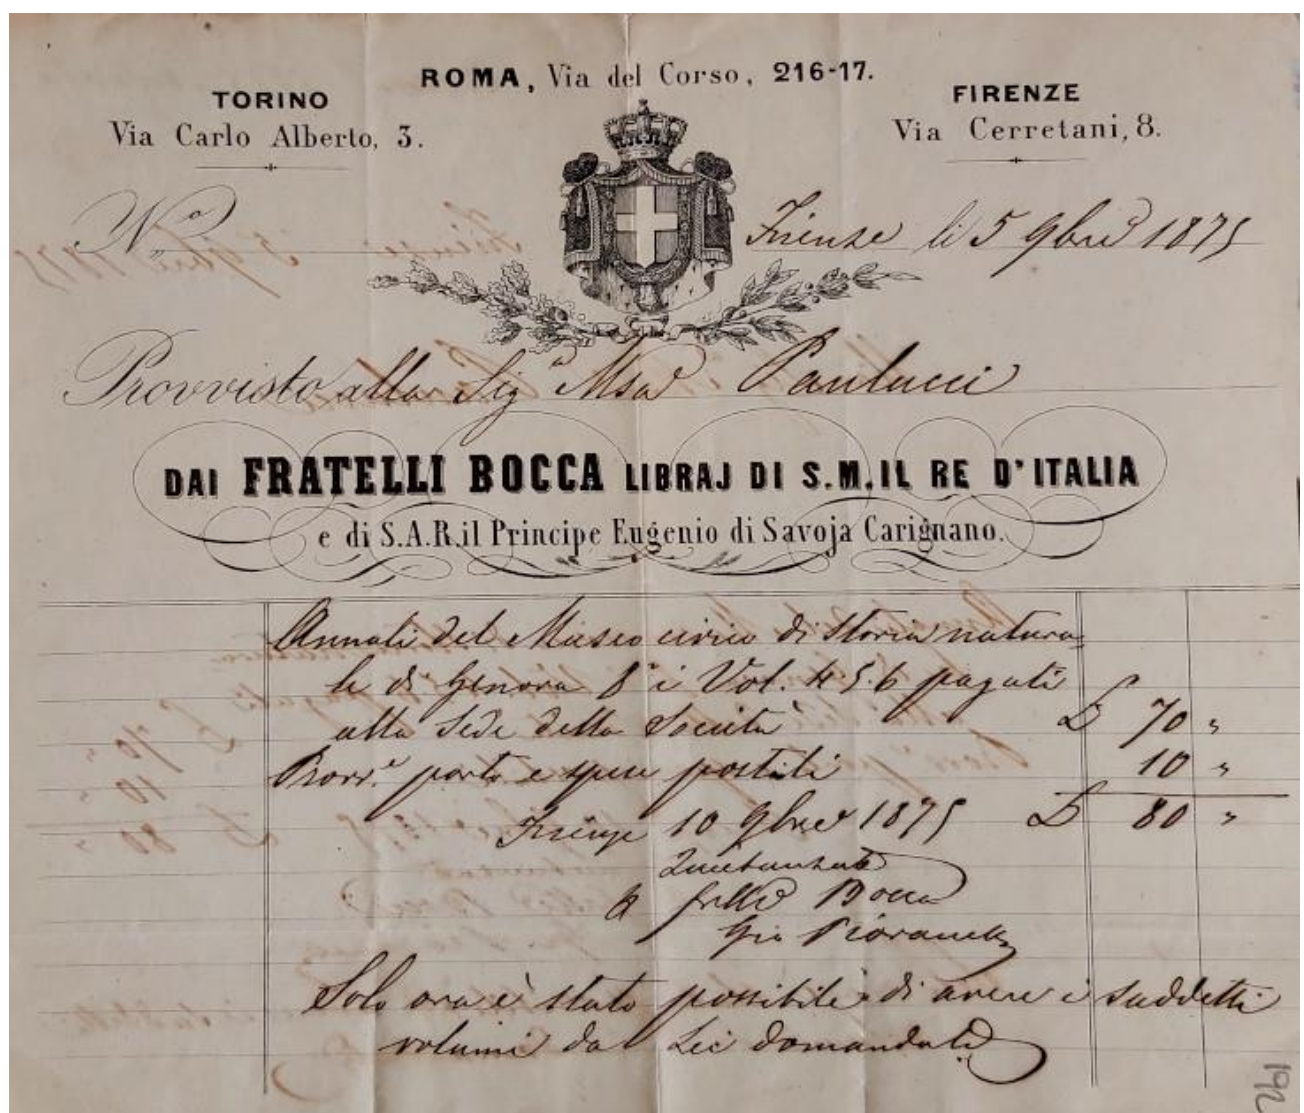 ROMA, Via del Corso, 216-17.
TORINO
Via Carlo Alberto, 3.
FIRENZE
Via Cerretani, 8.
N.º
Firenze li 5 9bre 1875
Provvisto alla Sigª Msa Paulucci
DAI FRATELLI BOCCA LIBRAJ DI S.M. IL RE D'ITALIA
e di S.A.R. il Principe Eugenio di Savoja Carignano.
Annali del Museo civico di Storia natura
le di Genova 8º i Vol. 4.5.6 pagati
alla Sede della Società £ 70 "
porto e spese postali 10 "
Firenze 10 9bre 1875 £ 80 "
Quietanzato
p fratelli Bocca
Gio
Solo ora è stato possibile di avere i suddetti
volumi da Lei domandati
192